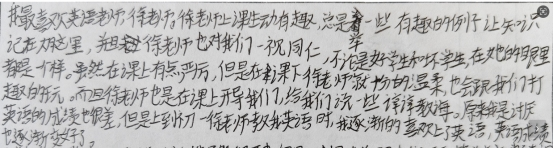 我最喜欢英语老师，徐老师。徐老师上课生动有趣，总是举一些有趣的例子让知识
记在大脑里，并且徐老师也对我们一视同仁，不论是好学生和坏学生，在她的眼里
都是一样。虽然在课上有点严厉，但是在课下徐老师十分的温柔，也会跟我们打
趣的开玩。而且徐老师也是在课上开导我们，给我们说一些谆谆教诲。原来我是讨厌
英语的成绩也很差，但是上到初一徐老师教我英语时，我逐渐的喜欢上了英语，英语成绩
也逐渐变好了。